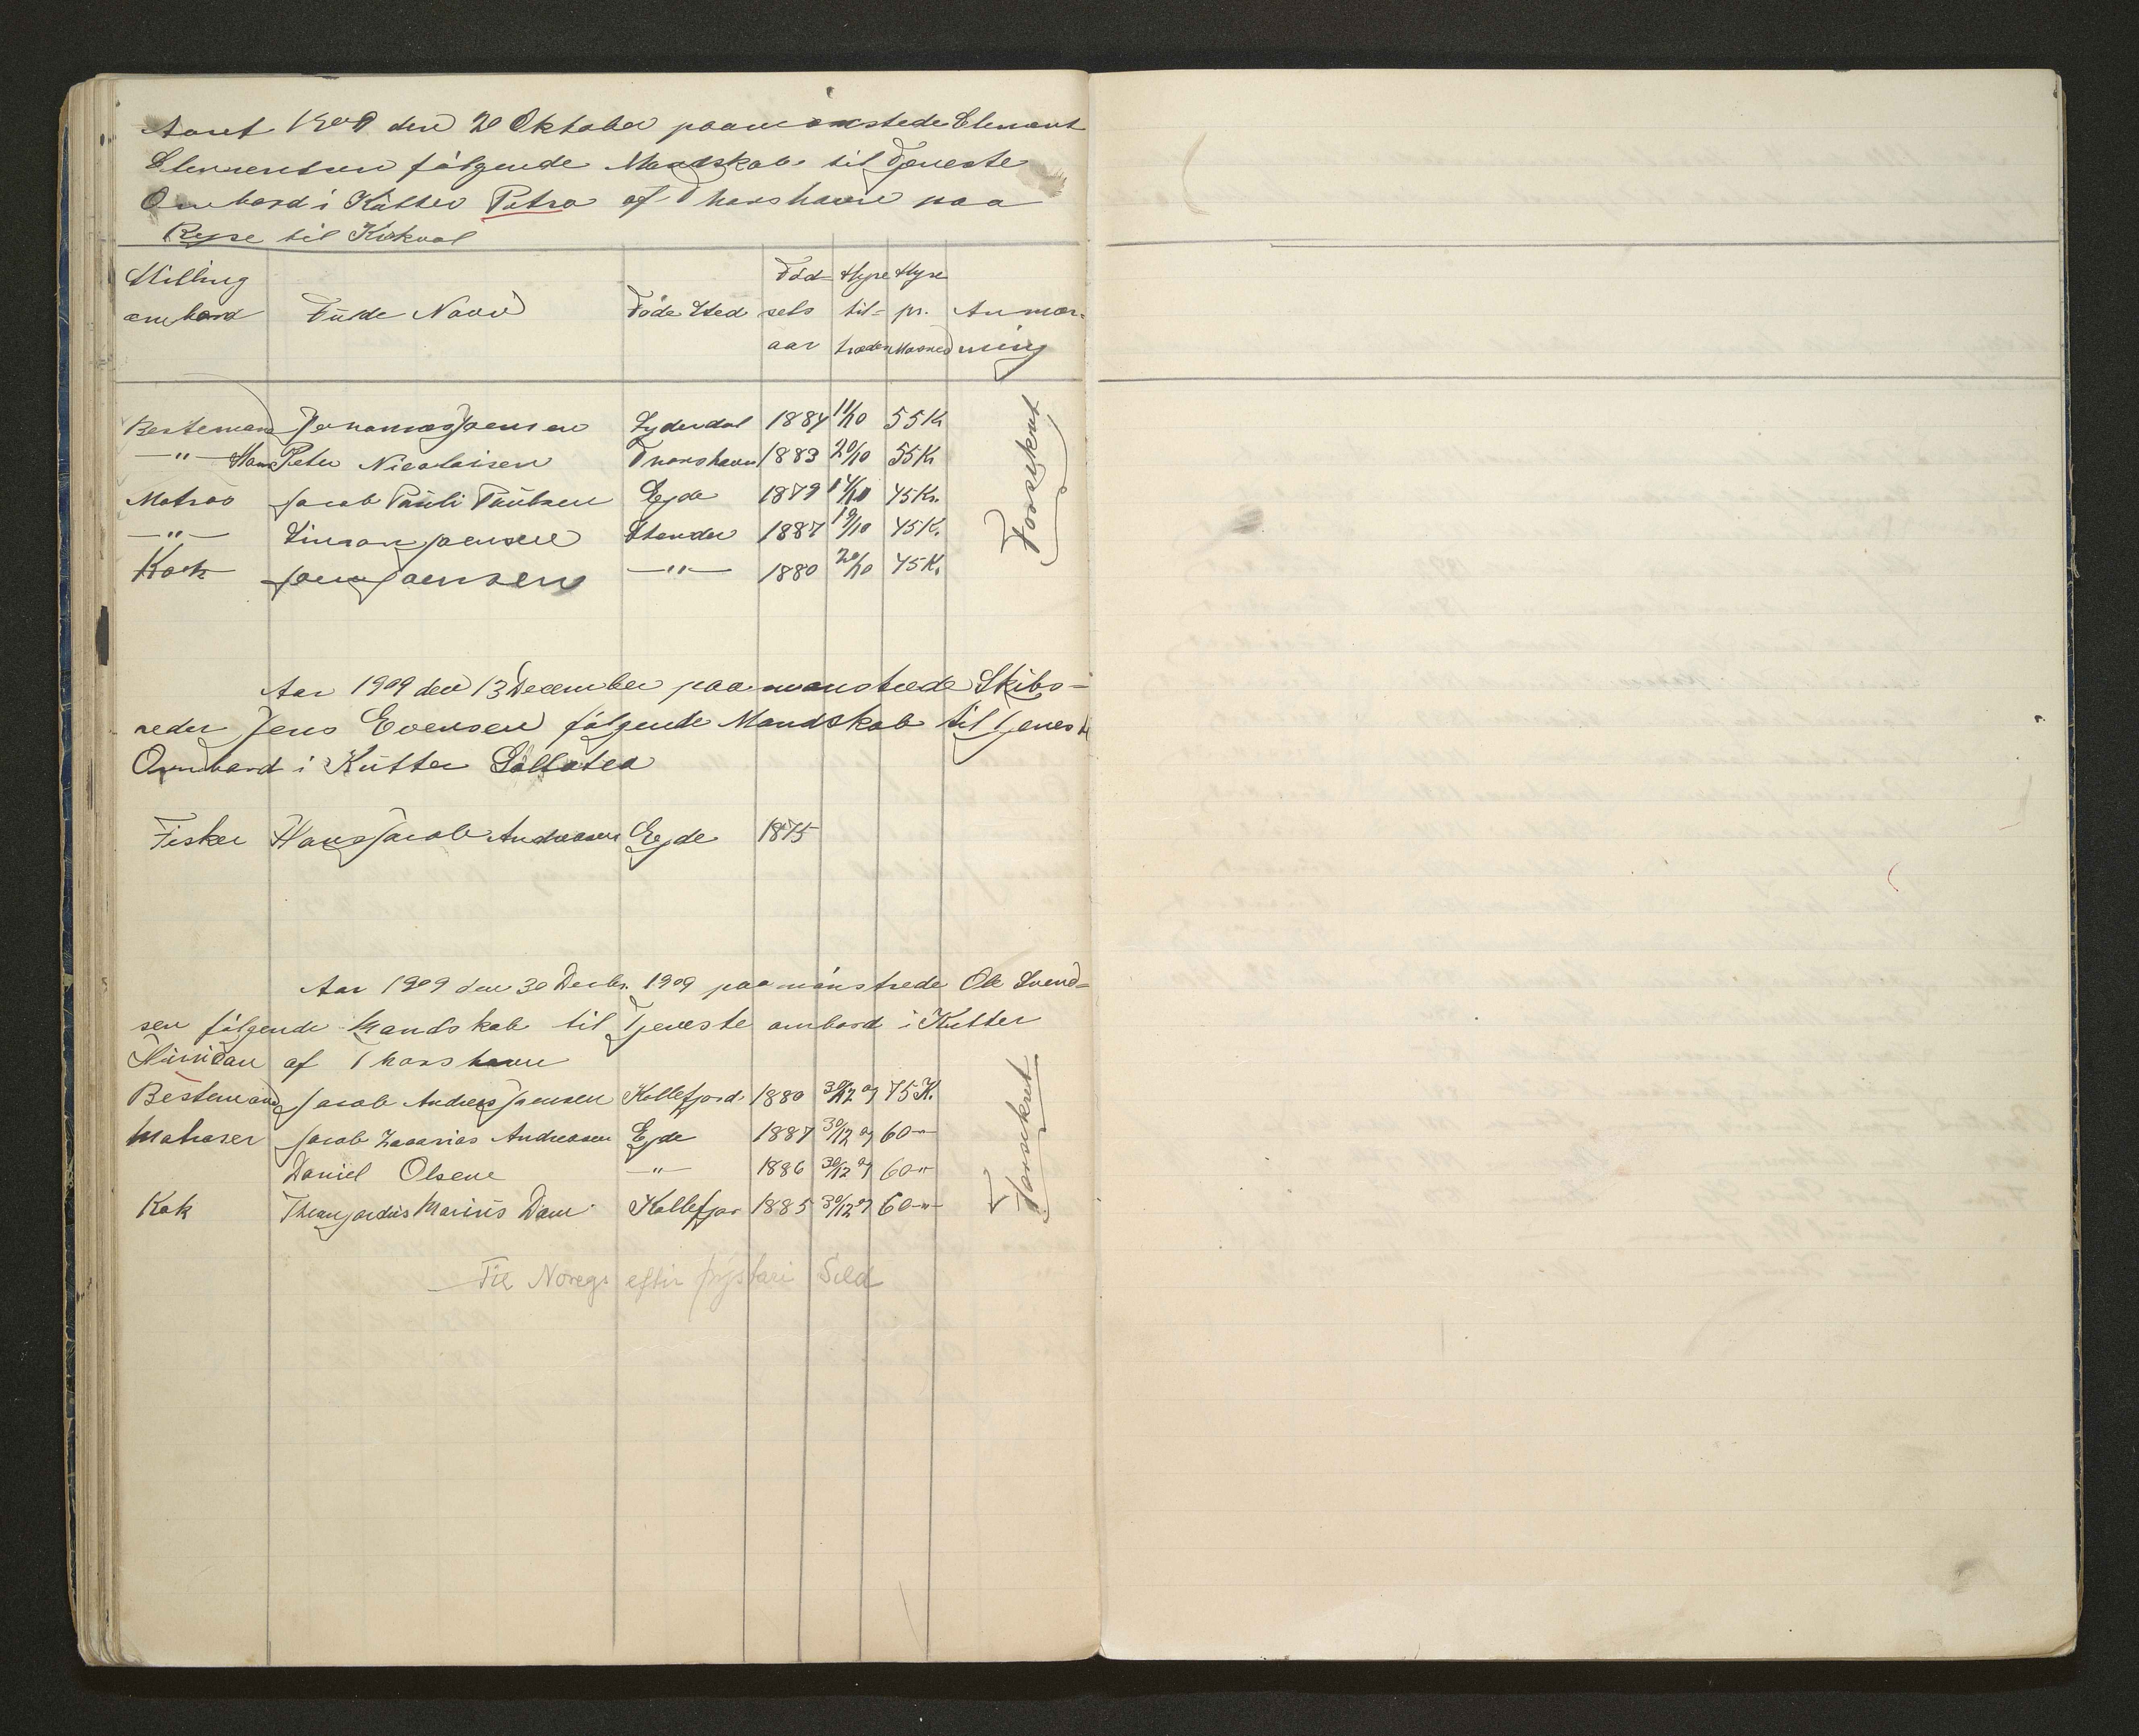 Aaret 1909 den 20 Oktober paamønstede Clement
Clementsen følgende Mandskab til Tjeneste
Ombord i Kutter Petra af Thorshavn paa
Rejse til Kirkval
Stilling
ombord
Fulde Navn
Føde Sted
Fød-
sels
aar
Hyre
til-
træden
Hyre
pr.
Maaned
Anmær-
ning
Bestemand Johannes Joensen Syderdal 1884 11/10 55 K
-"- Hans Peter Nicolaisen Thorshavn 1883 20/10 55 K
Matros Jacob Pauli Poulsen Ejde 1879 14/10 45 Kr.
-"- Simon Joensen Stender 1887 19/10 45 K.
Kock Joen Joensen -"- 1880 20/10 45 K.
Forsikret
Aar 1909 den 13 December paamønstrede Skibs-
reder Jens Evensen følgende Mandskab til Tjeneste
Ombord i Kutter Gallatea
Fisker Hans Jacob Andreasen Ejde 1875
Aar 1909 den 30 Decbr. 1909 paamønstrede Ole Svend-
sen følgende Mandskab til Tjeneste ombord i Kutter
af Thorshavn
Bestemand Jacob Andreas Joensen Kollefjord 1880 30/12 09 75 K.
Matroser Jacob Zacarias Andreasen Ejde 1887 30/12 09 60 -"-
Daniel Olsen -"- 1886 30/12 09 60 -"-
Kok Marius Dam Kollefjor 1885 30/12 09 60 -"-
Forsikret
Til Noregs eftir frystari Sild